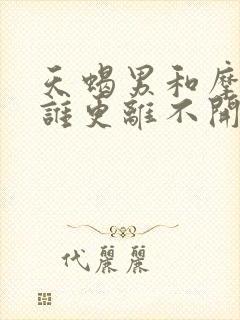 天蝎男和摩
誰更離不開
代麗麗